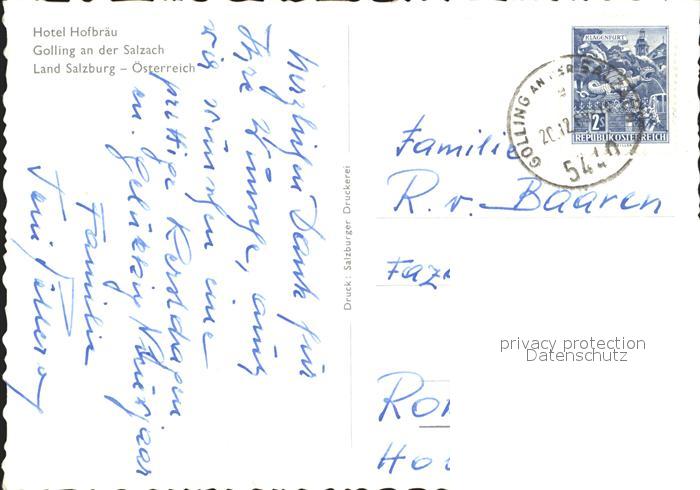 Hotel Hofbräu
Golling an der Salzach
Land Salzburg – Österreich
Herzlichen Dank für
Ihre Wünsche, auch
wir wünschen eine
prettige Kerstdagen
en Gelukkig Nieuwjaar
Familie
Druck: Salzburger Druckerei
KLAGENFURT
2S
REPUBLIK ÖSTERREICH
GOLLING AN DER SALZACH
20.12.
5440
Familie
R. v. Baaren
privacy protection
Datenschutz